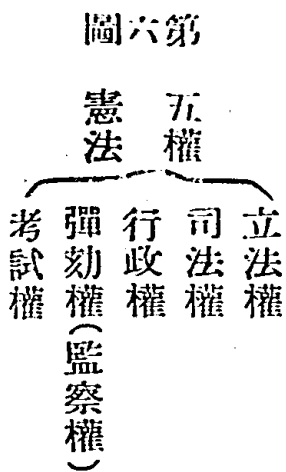 第六圖
五權
憲法
立法權
司法權
行政權
彈劾權(監察權)
考試權